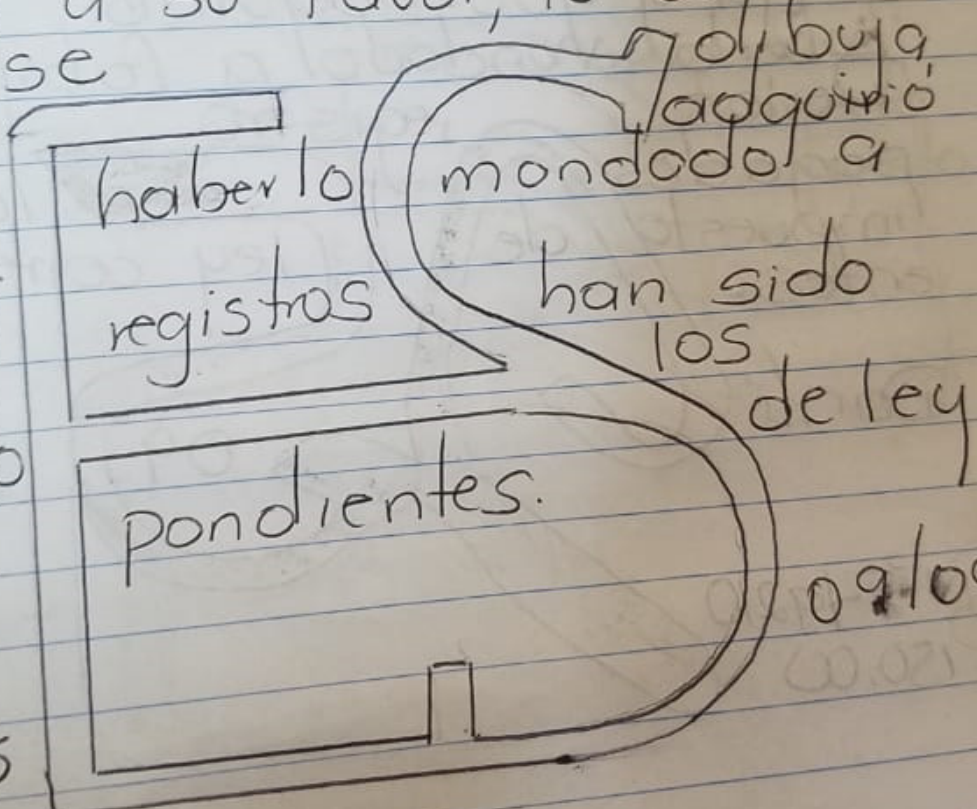 a su favor, lo
se dibuja,
adquirió
haberlo mondodo a
registros han sido
los
de ley
pondientes.
09/09